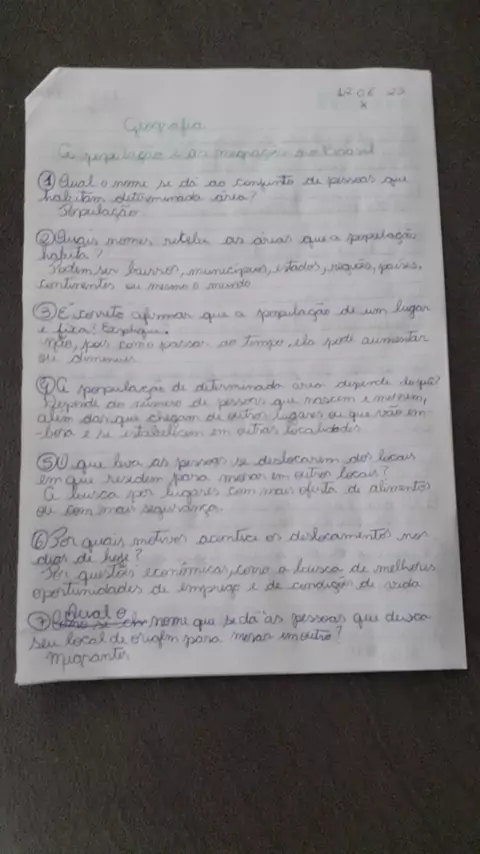 12 06 23
x
Geografia
A população e as migrações no Brasil
1 Qual o nome se dá ao conjunto de pessoas que
habitam determinada área?
População
2 Quais nomes recebe as áreas que a população
habita?
Podem ser bairros, municípios, estados, regiões, países,
continentes ou mesmo o mundo
3 É correto afirmar que a população de um lugar
é fixa? Explique.
Não, pois com o passar do tempo, ela pode aumentar
ou diminuir
4 A população de determinada área depende do quê?
Depende do número de pessoas que nascem e morrem,
além das que chegam de outros lugares ou que vão em-
-bora e se estabelecem em outras localidades
5 O que leva as pessoas se deslocarem dos locais
em que residem para morar em outros locais?
A busca por lugares com mais oferta de alimentos
ou com mais segurança.
6 Por quais motivos acontece os deslocamentos nos
dias de hoje?
Por questões econômicas, como a busca de melhores
oportunidades de emprego e de condição de vida
7 Qual o nome que se dá às pessoas que deixa
seu local de origem para morar em outro?
Migrantes